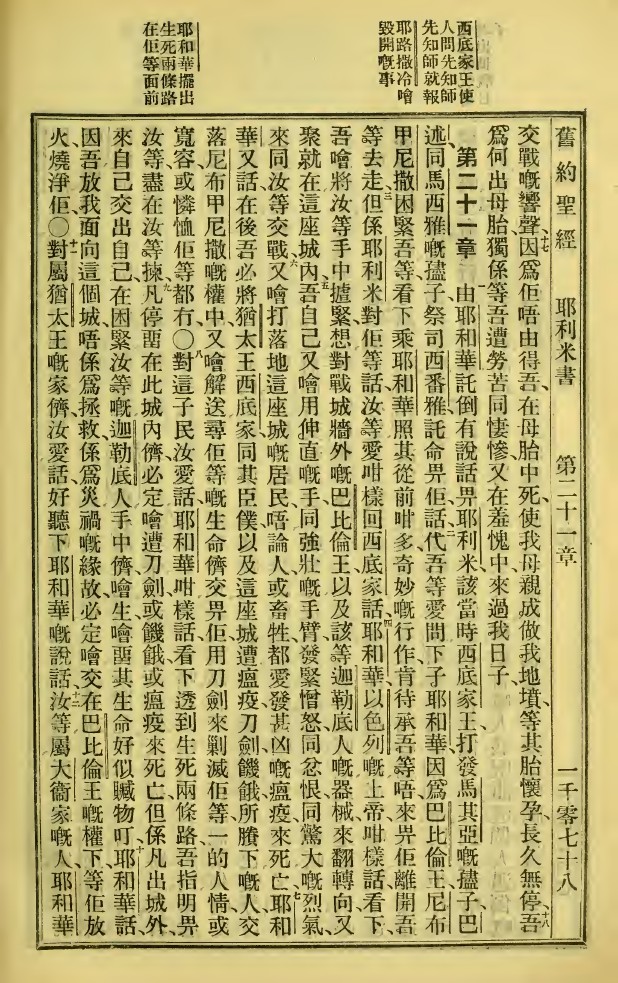 舊約聖經　耶利米書　第二十一章　一千零七十八
西底家王使
人問先知師
先知師就報
耶路撒冷噲
毀開嘅事
耶和華擺出
生死兩條路
在佢等面前
交戰嘅響聲、十七因爲佢唔由得吾、在母胎中死、使我母親成做我地墳、等其胎懷孕、長久無停、十八吾
爲何出母胎、獨係等吾遭勞苦同悽慘、又在羞愧中來過我日子、
第二十一章　一由耶和華託倒有說話畀耶利米、該當時西底家王打發馬其亞嘅孻子巴
述、同馬西雅嘅孻子祭司西番雅、託命畀佢話、二代吾等愛問下子耶和華、因爲巴比倫王尼布
甲尼撒困緊吾等、看下乘耶和華照其從前咁多奇妙嘅行作、肯待承吾等唔、來畀佢離開吾
等去走、三但係耶利米對佢等話、汝等愛咁樣回西底家話、四耶和華以色列嘅上帝咁樣話、看下、
吾噲將汝等手中攎緊、想對戰城牆外嘅巴比倫王、以及該等迦勒底人嘅器械、來翻轉向、又
聚就在這座城內、五吾自己又噲用伸直嘅手、同強壯嘅手臂、發緊憎怒、同忿恨、同驚大嘅烈氣、
來同汝等交戰、六又噲打落地這座城嘅居民、唔論人或畜牲、都愛發甚凶嘅瘟疫來死亡、七耶和
華又話、在後吾必將猶太王西底家、同其臣僕、以及這座城遭瘟疫、刀劍、饑餓、所賸下嘅人、交
落尼布甲尼撒嘅權中、又噲解送尋佢等嘅生命儕、交畀佢用刀劍來剿滅佢等、一的人情、或
寬容、或憐恤佢等都冇、〇八對這子民汝愛話、耶和華咁樣話、看下、透到生死兩條路、吾指明畀
汝等、盡在汝等揀、九凡停歇在此城內儕、必定噲遭刀劍、或饑餓、或瘟疫來死亡、但係凡出城外、
來自己交出自己在困緊汝等嘅迦勒底人手中儕、噲生、噲歇、其生命好似贓物叮、十耶和華話、
因吾放我面向這個城、唔係爲拯救、係爲災禍嘅緣故、必定噲交在巴比倫王嘅權下、等佢放
火燒淨佢、〇十一對屬猶太王嘅家儕、汝愛話、好聽下耶和華嘅說話、十二汝等屬大衞家嘅人、耶和華